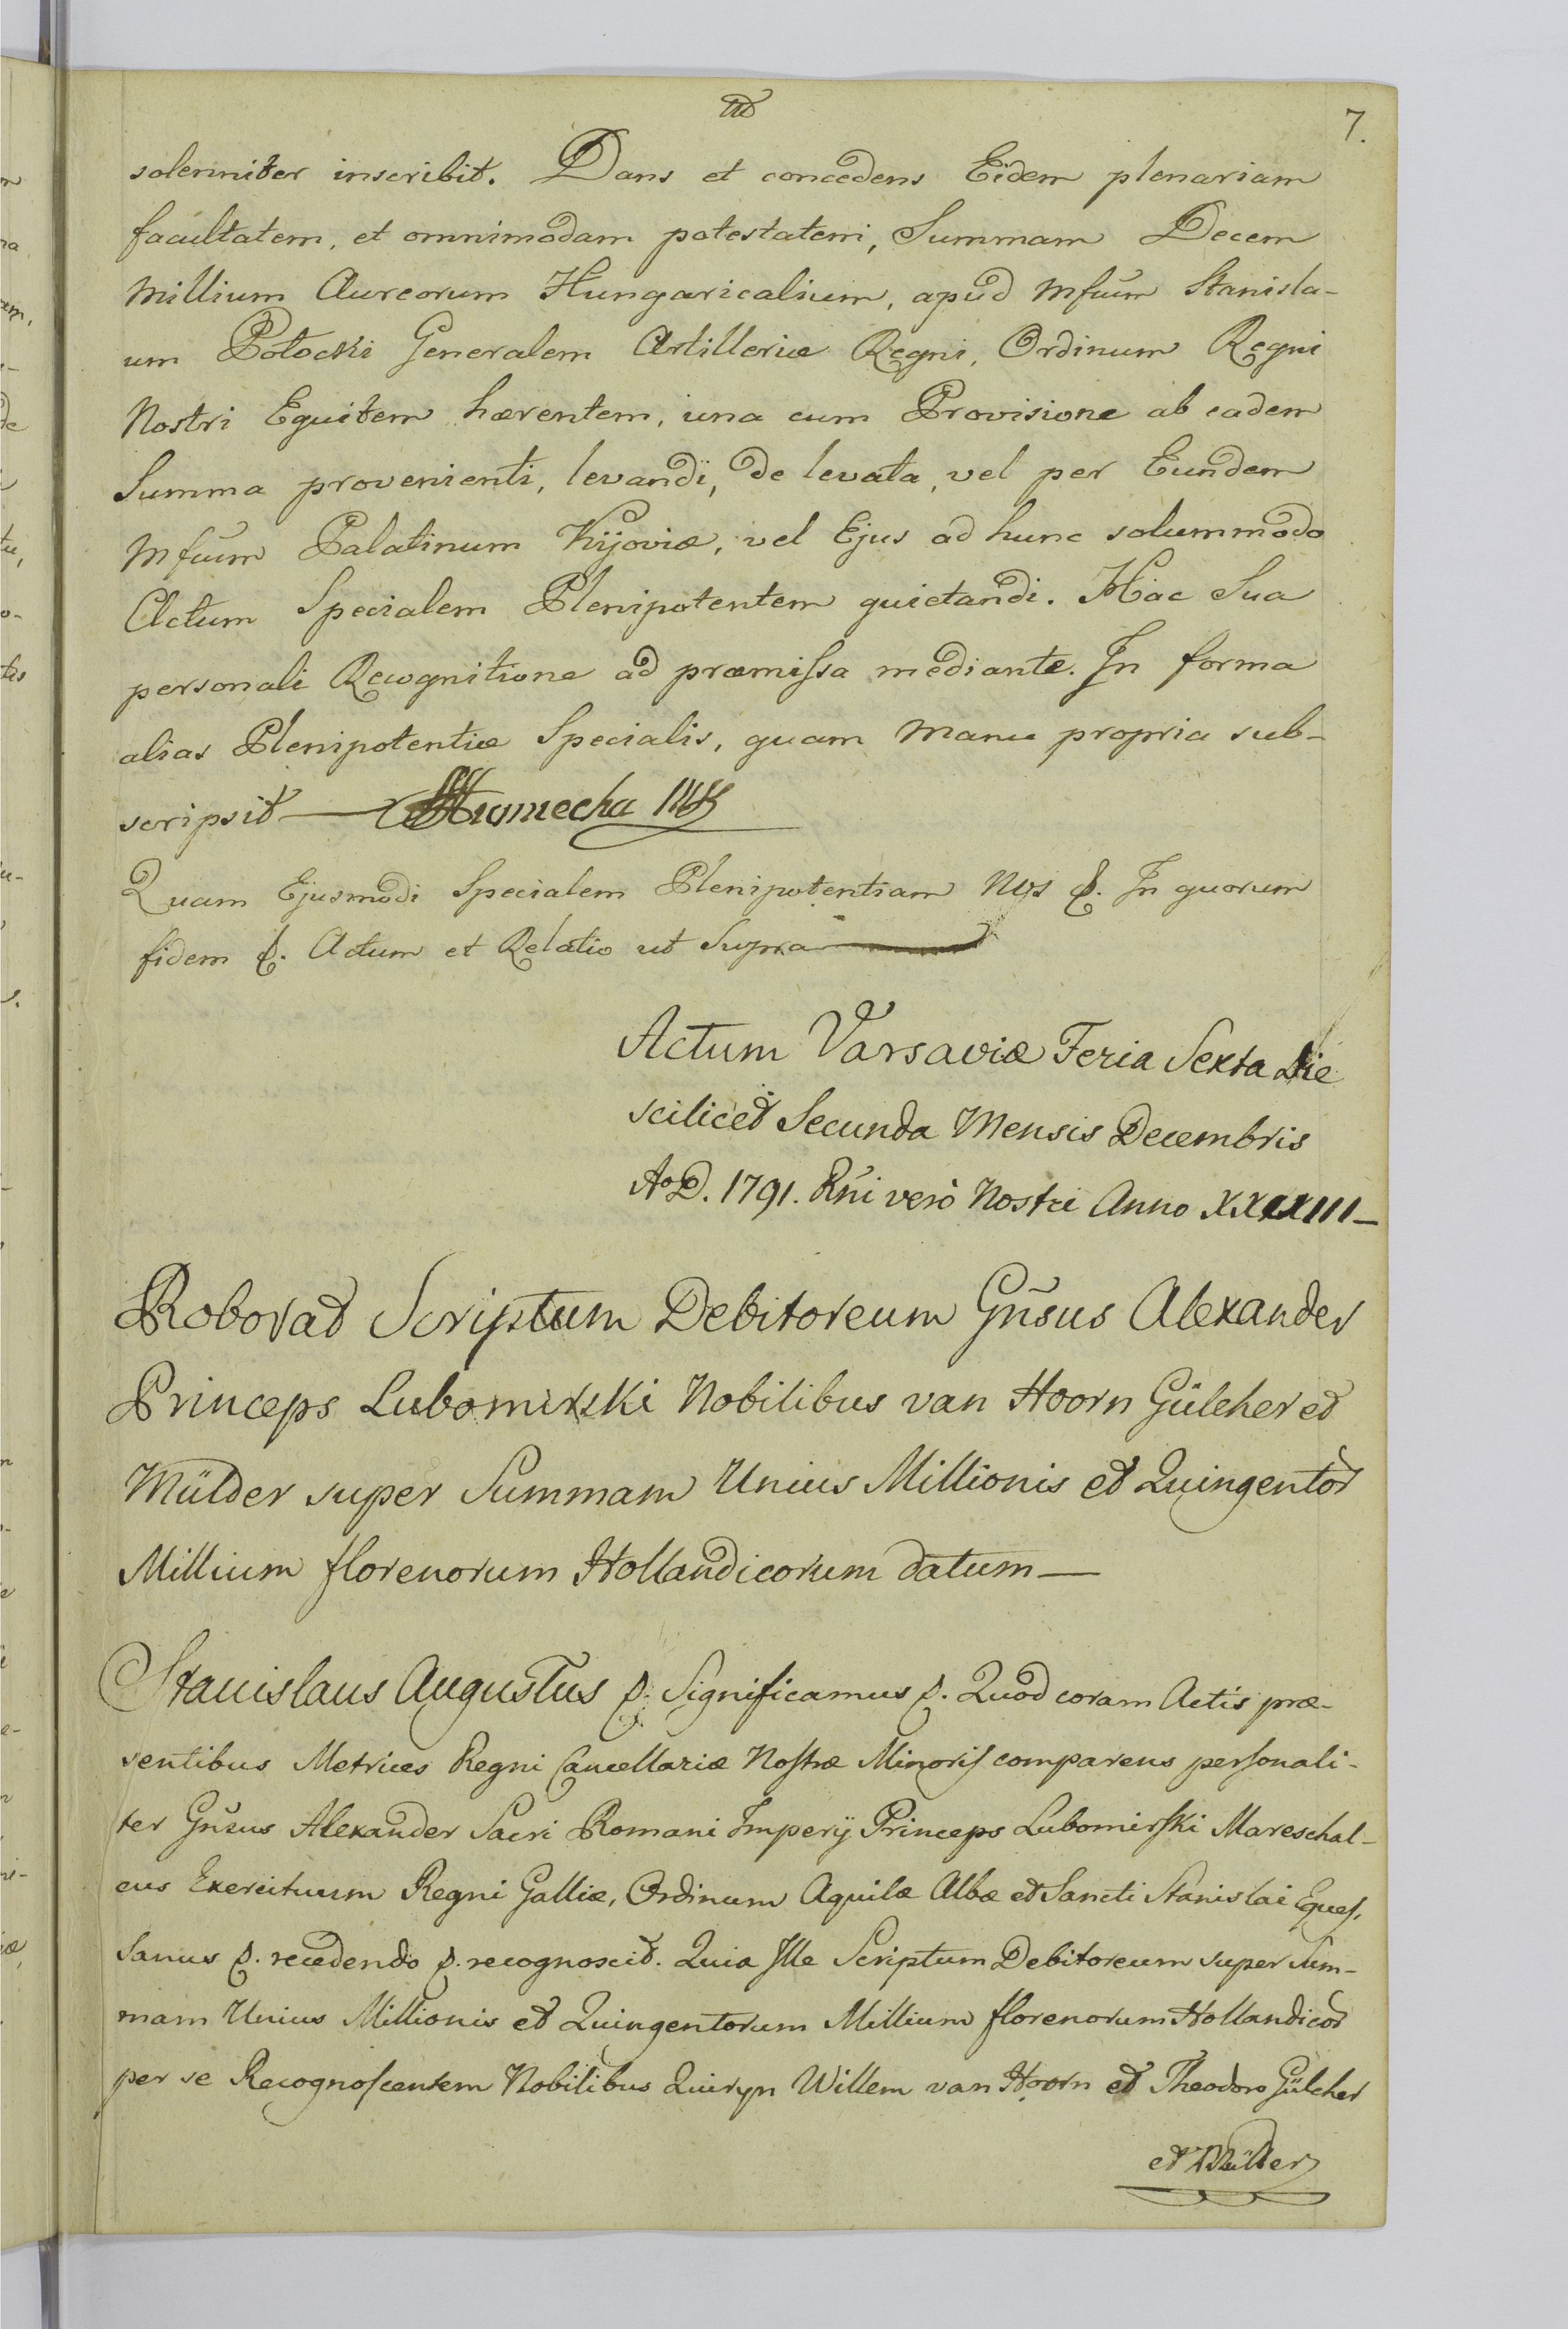 7.
solenniter inscribit. Dans et concedens Eidem plenariam
facultatem, et omnimodam potestatem, Summam Decem
Millium Aureorum Hungaricalium, apud Mfum Stanisla-
um Potocki Generalem Artilleriæ Regni, Ordinum Regni
Nostri Equitem hærentem, una cum Provisione ab eadem
Summa provenienti, levandi, de levata, vel per Eundem
Mfum Palatinum Kijoviæ, vel Ejus ad hunc solummodo
Actum Specialem Plenipotentem quietandi. Hac Sua
personali Recognitione ad præmissa mediante. In forma
alias Plenipotentiæ Specialis, quam manu propria sub-
scripsit
Quam Ejusmodi Specialem Plenipotentiam Nos &. In quorum
fidem &. Actum et Relatio ut Supra
Actum Varsaviæ Feria Sexta Die
scilicet Secunda Mensis Decembris
Ao D. 1791. Rni vero Nostri Anno XXVIII
Roborat Scriptum Debitoreum Gnsus Alexander
Princeps Lubomirski Nobilibus van Hoorn Gülcher et
Mülder super Summam Unius Millionis et Quingentor
Millium florenorum Hollandicorum datum
Stanislaus Augustus &. Significamus &. Quod coram Actis præ-
sentibus Metrices Regni Cancellariæ Nostræ Minoris comparens personali-
ter Gnsus Alexander Sacri Romani Imperij Princeps Lubomirski Mareschal-
cus Exercituum Regni Galliæ, Ordinum Aquilæ Albæ et Sancti Stanislai Eques,
Sanus &. recedendo &. recognoscit. Quia Ille Scriptum Debitoreum super Sum-
mam Unius Millionis et Quingentorum Millium florenorum Hollandicor
per se Recognoscentem Nobilibus Quiryn Willem van Hoorn et Theodoro Gülcher
et Mülder